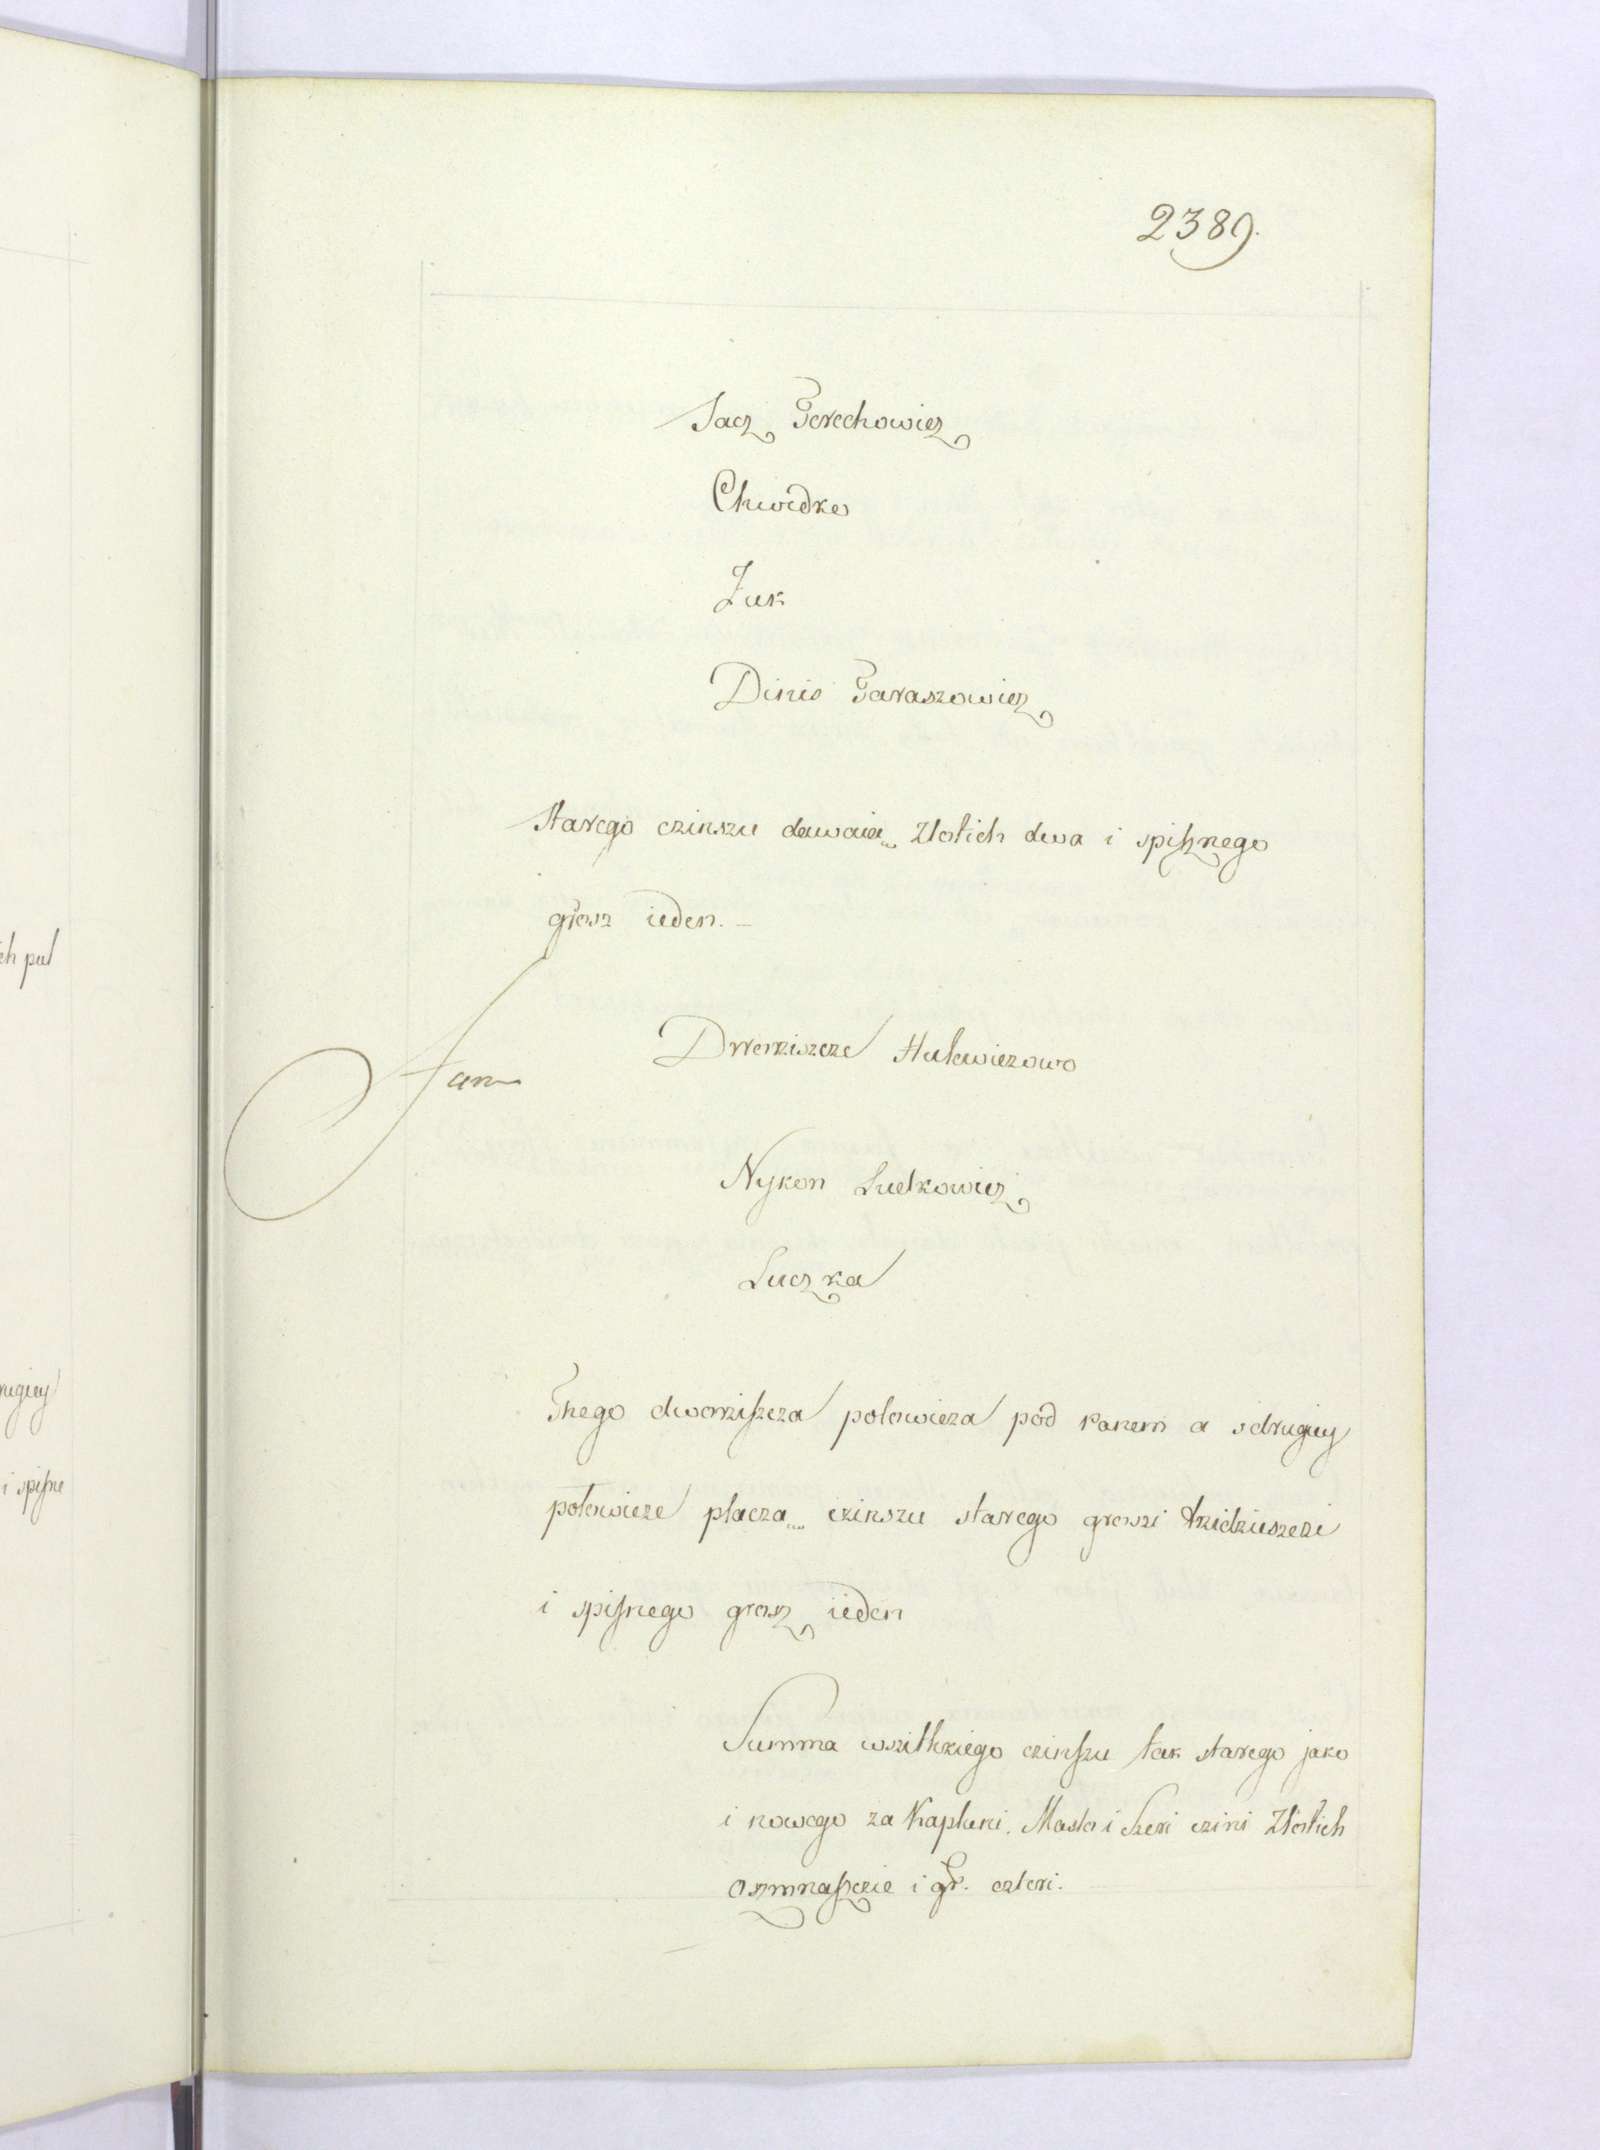 2389.
Sacz Terechowicz
Chwedko
Żuk
Dinis Taraszowicz
starego czinszu dawaią Złotich dwa i spiżnego
grosz ieden. —
Dworziszcze Hulewiczowo
Nykon Luckowicz
Luczka
Tnego dworziszcza połowicza pod Panem a sdrugiey
połowicze płaczą czinszu starego groszi trzidziesczi
i spiżnego grosz ieden
Summa wszitkiego czinszu tak starego jako
i nowego za Kapluni, Masło i Szeri czini Złotich
oszmnaszczie i gr. czteri.
ch pul
rugiey
i spiżne